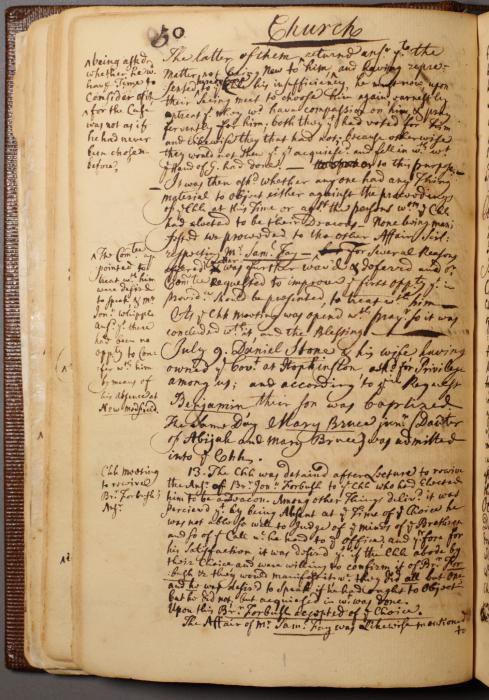 50 Church
∧being asked
whether he wd
have Time to
Consider of it
∧ for the Case
was not as if
he had never
been chosen
before,
The latter of them returned ansr yt the
Matter, not being New to him, and having repre-
sented to his insufficiency, he must now upon
their Seeing meet to choose him again earnestly
entreat yt they wd have compassion on him & pray
fervently for him, both they yt had voted for him
and likewise they that had not; because otherwise
they would not then yy acquiesce and fall in wth wt
ye Hand of G. had done.
to this purpose.
It was then askd whether any one had any Thing
material to object either against the proceedings
of ye Chh at this Time or agst the persons wm ye Chh
had elected to be their Deacons. None being mani
fested we proceeded to the other Affair, Scil.
respecting Mr. Saml. Fay — for Several Reasons
offered was further and deferred and ye
Comtee requested to improve ye first oppty yt in
Provide shoud be presented, to treat wth him —
As ye Chh Meeting was opend wth prayr so it was
concluded wth it and the Blessing.
∧ The Comtee ap
pointed to
treat wth him
were desird
to speak, & Mr
Jonn Whipple
Ansd yt there
had been no
oppty to Con-
fer wth him
by means of
his absence at
New Medfield.
July 9. Daniel Stone & his wife having
owned ye Covt at Hopkinston askd for Privilege
among us; and according to yir Request
Benjamin their son was baptized.
The Same Day Mary Bruce junr (Daughter
of Abijah and Mary Bruce) was admitted
into ye Chh.
Chh meeting
to receive
Br. Forbush's
Ansr.
13. The Chh was detaind after Lecture to receive
the Ansr. of Br. Jonn Forbush to ye Chh who had elected
him to be a Deacon. Among other Things deliverd it was
perceivd yt by being Absent at ye Time of ye Choice he
was not able so well to Judge of ye minds of ye Brethren
and so of ye Call wc he had to ye office; and yrfore for
his Satisfaction it was desird yt if the Chh abode by
their Choice and were willing to confirm it of Br. For
bush &c they would manifest it wc they did all but one
and he was desird to Speak if he had ought to Object
but he did not, but acquiesced in wt was done.
Upon this Br. Forbush accepted of ye Choice.
The Affair of Mr. Saml. Fay was likewise mentioned
to